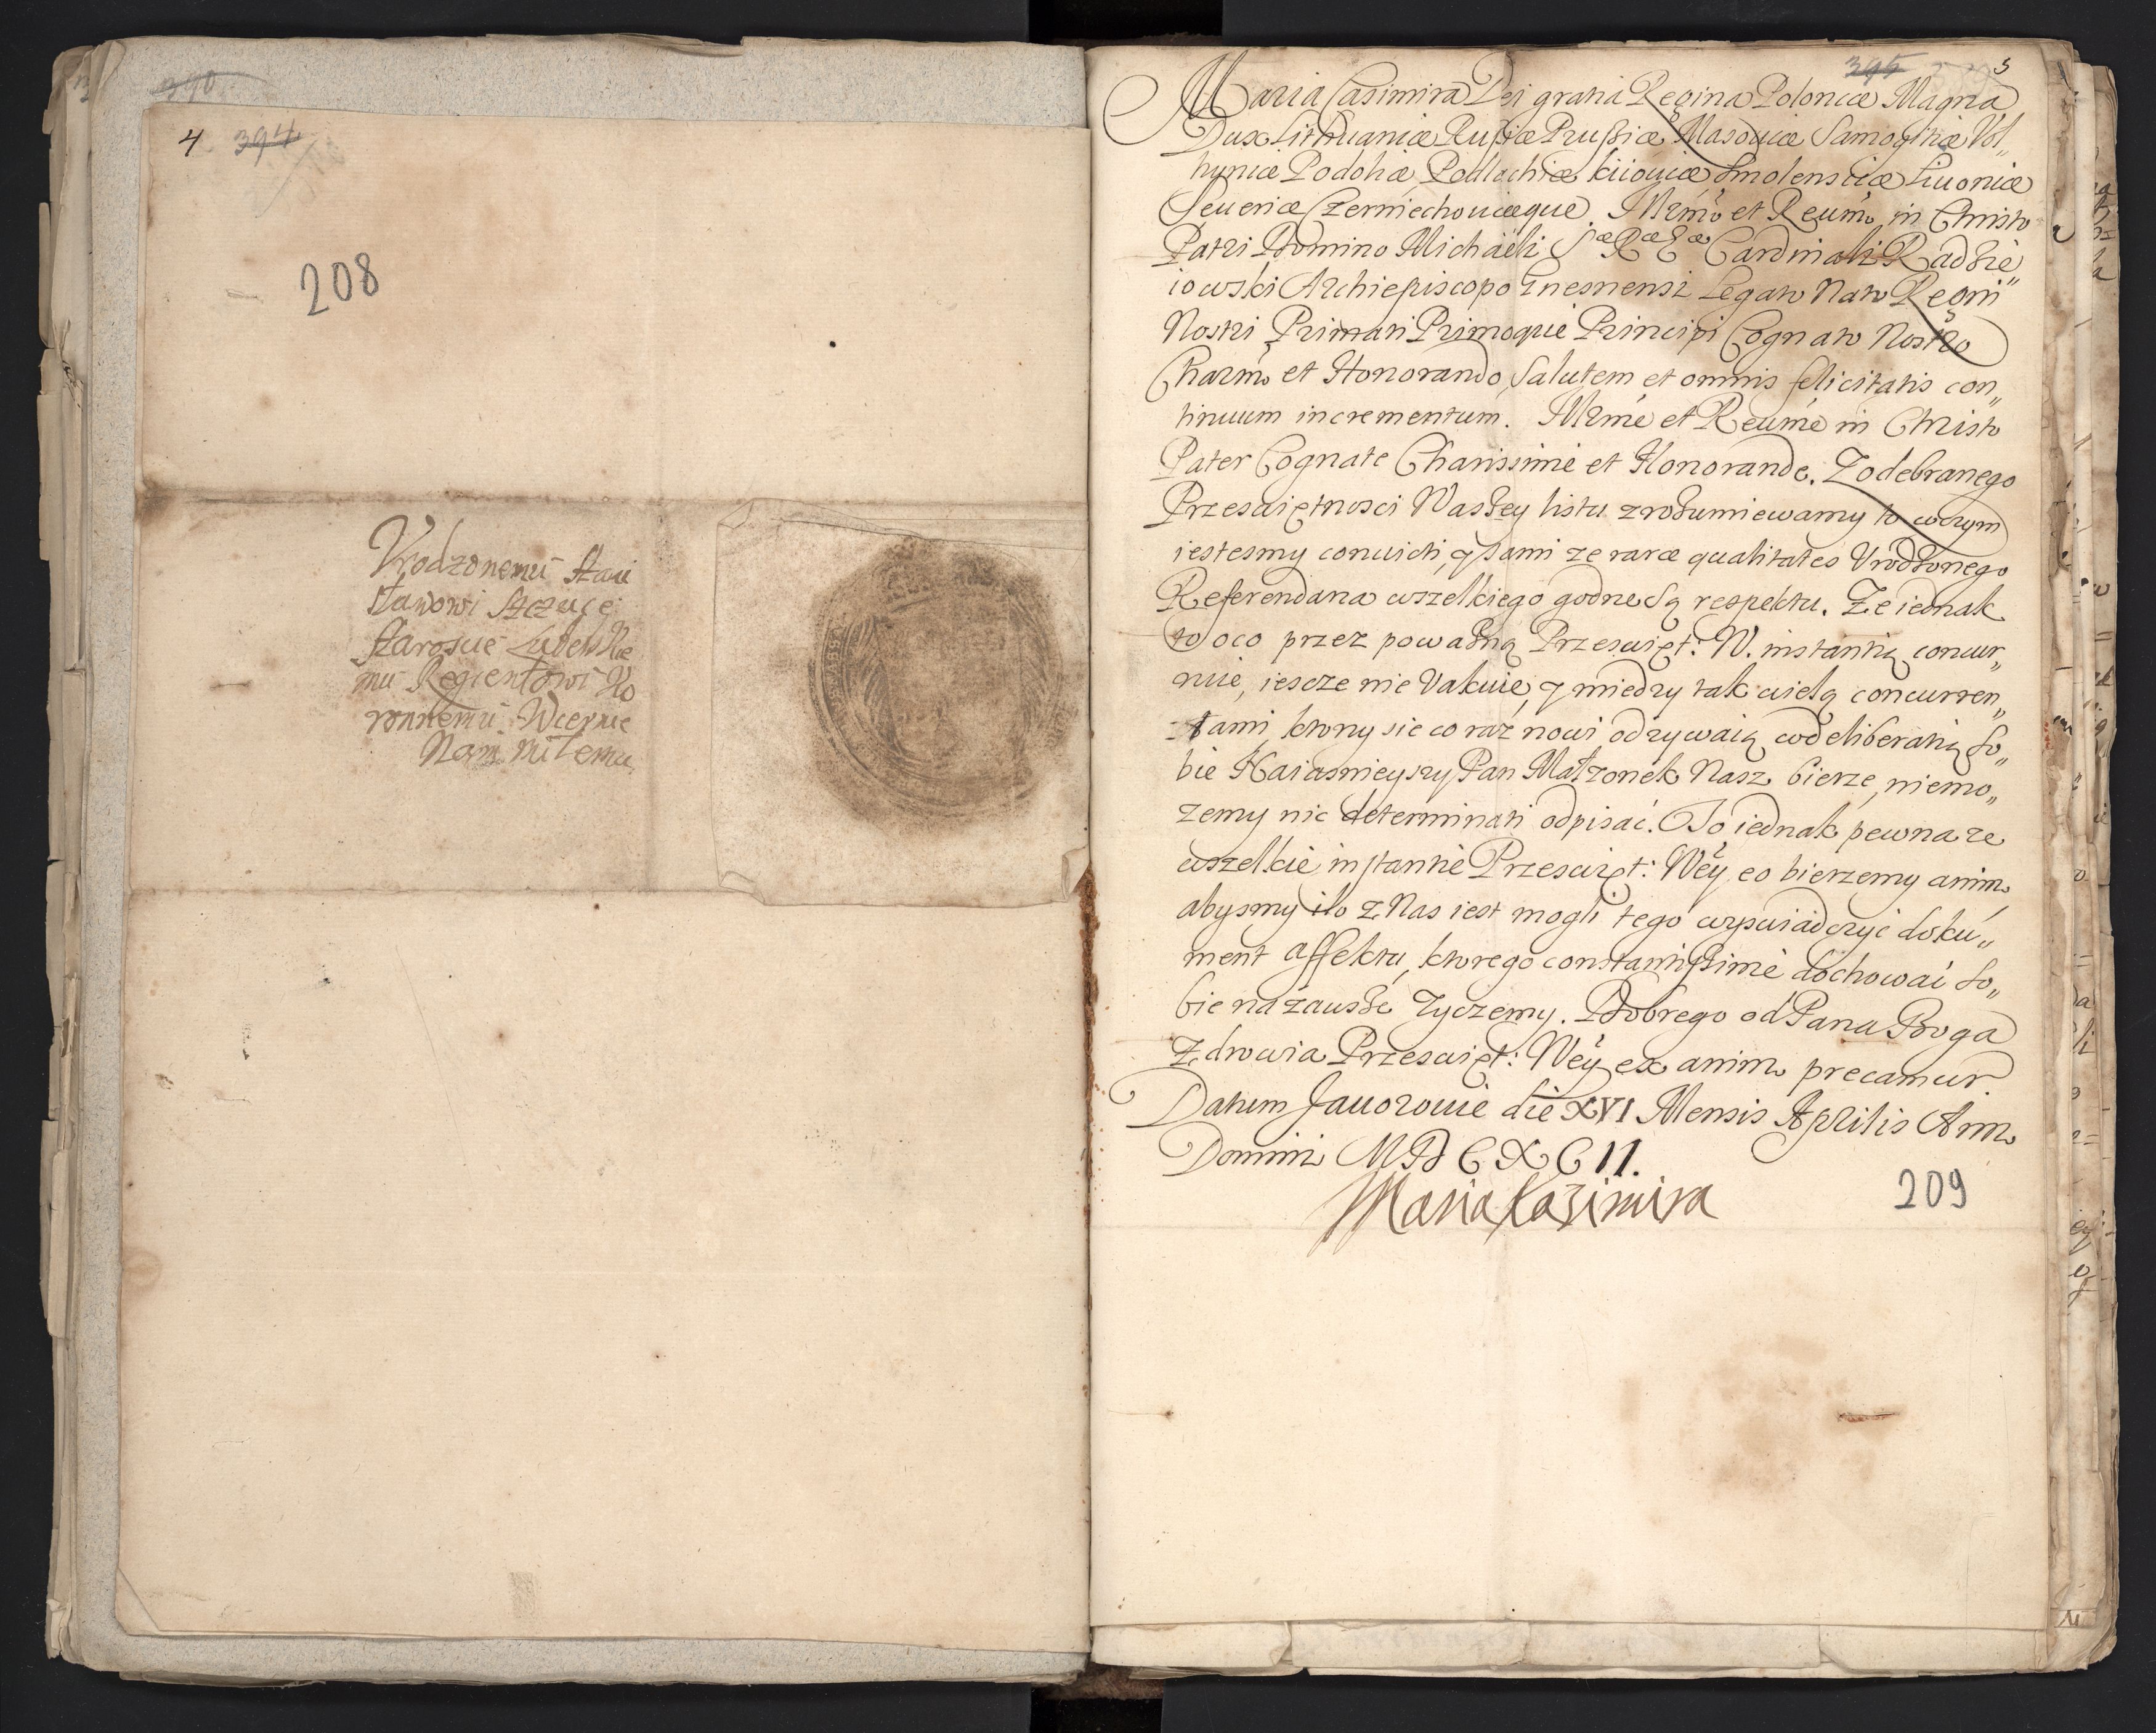 390
4 394
208
Vrodzonemu Stani
sławowi Szczuce
Staroscie Lubelskie
mu Regientowi Ko
ronnemu Wiernie
Nam miłemu
395 3
Maria Casimira Dei gratia Regina Poloniæ Magna
Dux Lithuaniæ Russiæ Prussiæ Masoviæ Samogitiæ Vol„
hyniæ Podoliæ Podlachiæ Kiioviæ Smolensciæ Livoniæ
Severiæ Czerniechoviæque. Illrmo et Reumo in Christo
Patri Domino Michaëli Sæ Ræ Eæ Cardinali Radzie„
iowski Archiepiscopo Gnesnensi Legato Nato Regni
Nostri Primati Primoque Principi Cognato Nostro
Charmo et Honorando, Salutem et omnis felicitatis con„
tinuum incrementum. Illrme et Reume in Christo
Pater Cognate Charissime et Honorande. Z odebranego
Przeswiętnosci Waszey listu zrozumiewamy to wczym
iestesmy convicti, y sami ze raræ qualitates Vrodzonego
Referendarza wszelkiego godne są respektu. Ze iednak
to oco przez powazną Przeswięt: W. instantią concur„
ruie, iescze nie Vakuie, y miedzy tak wielą concurren„
tami, ktorzy sie co raz nowi odzywaią, w deliberatią so„
bie Naiasnieyszy Pan Małzonek Nasz bierze, niemo„
zemy nic determinati odpisać. To iednak pewna ze
wszelkie instantie Przeswięt: Wey eo bierzemy animo
abysmy ilo z Nas iest mogli tego wyswiadczyć doku„
ment affektu, ktorego constantissime dochować so„
bie na zawsze zyczemy. Dobrego od Pana Boga
Zdrowia Przeswięt: Wey ex animo precamur
Datum Javoroviæ die XVI Mensis Aprilis Anno
Domini MDCXCII.
Maria Kazimira
209